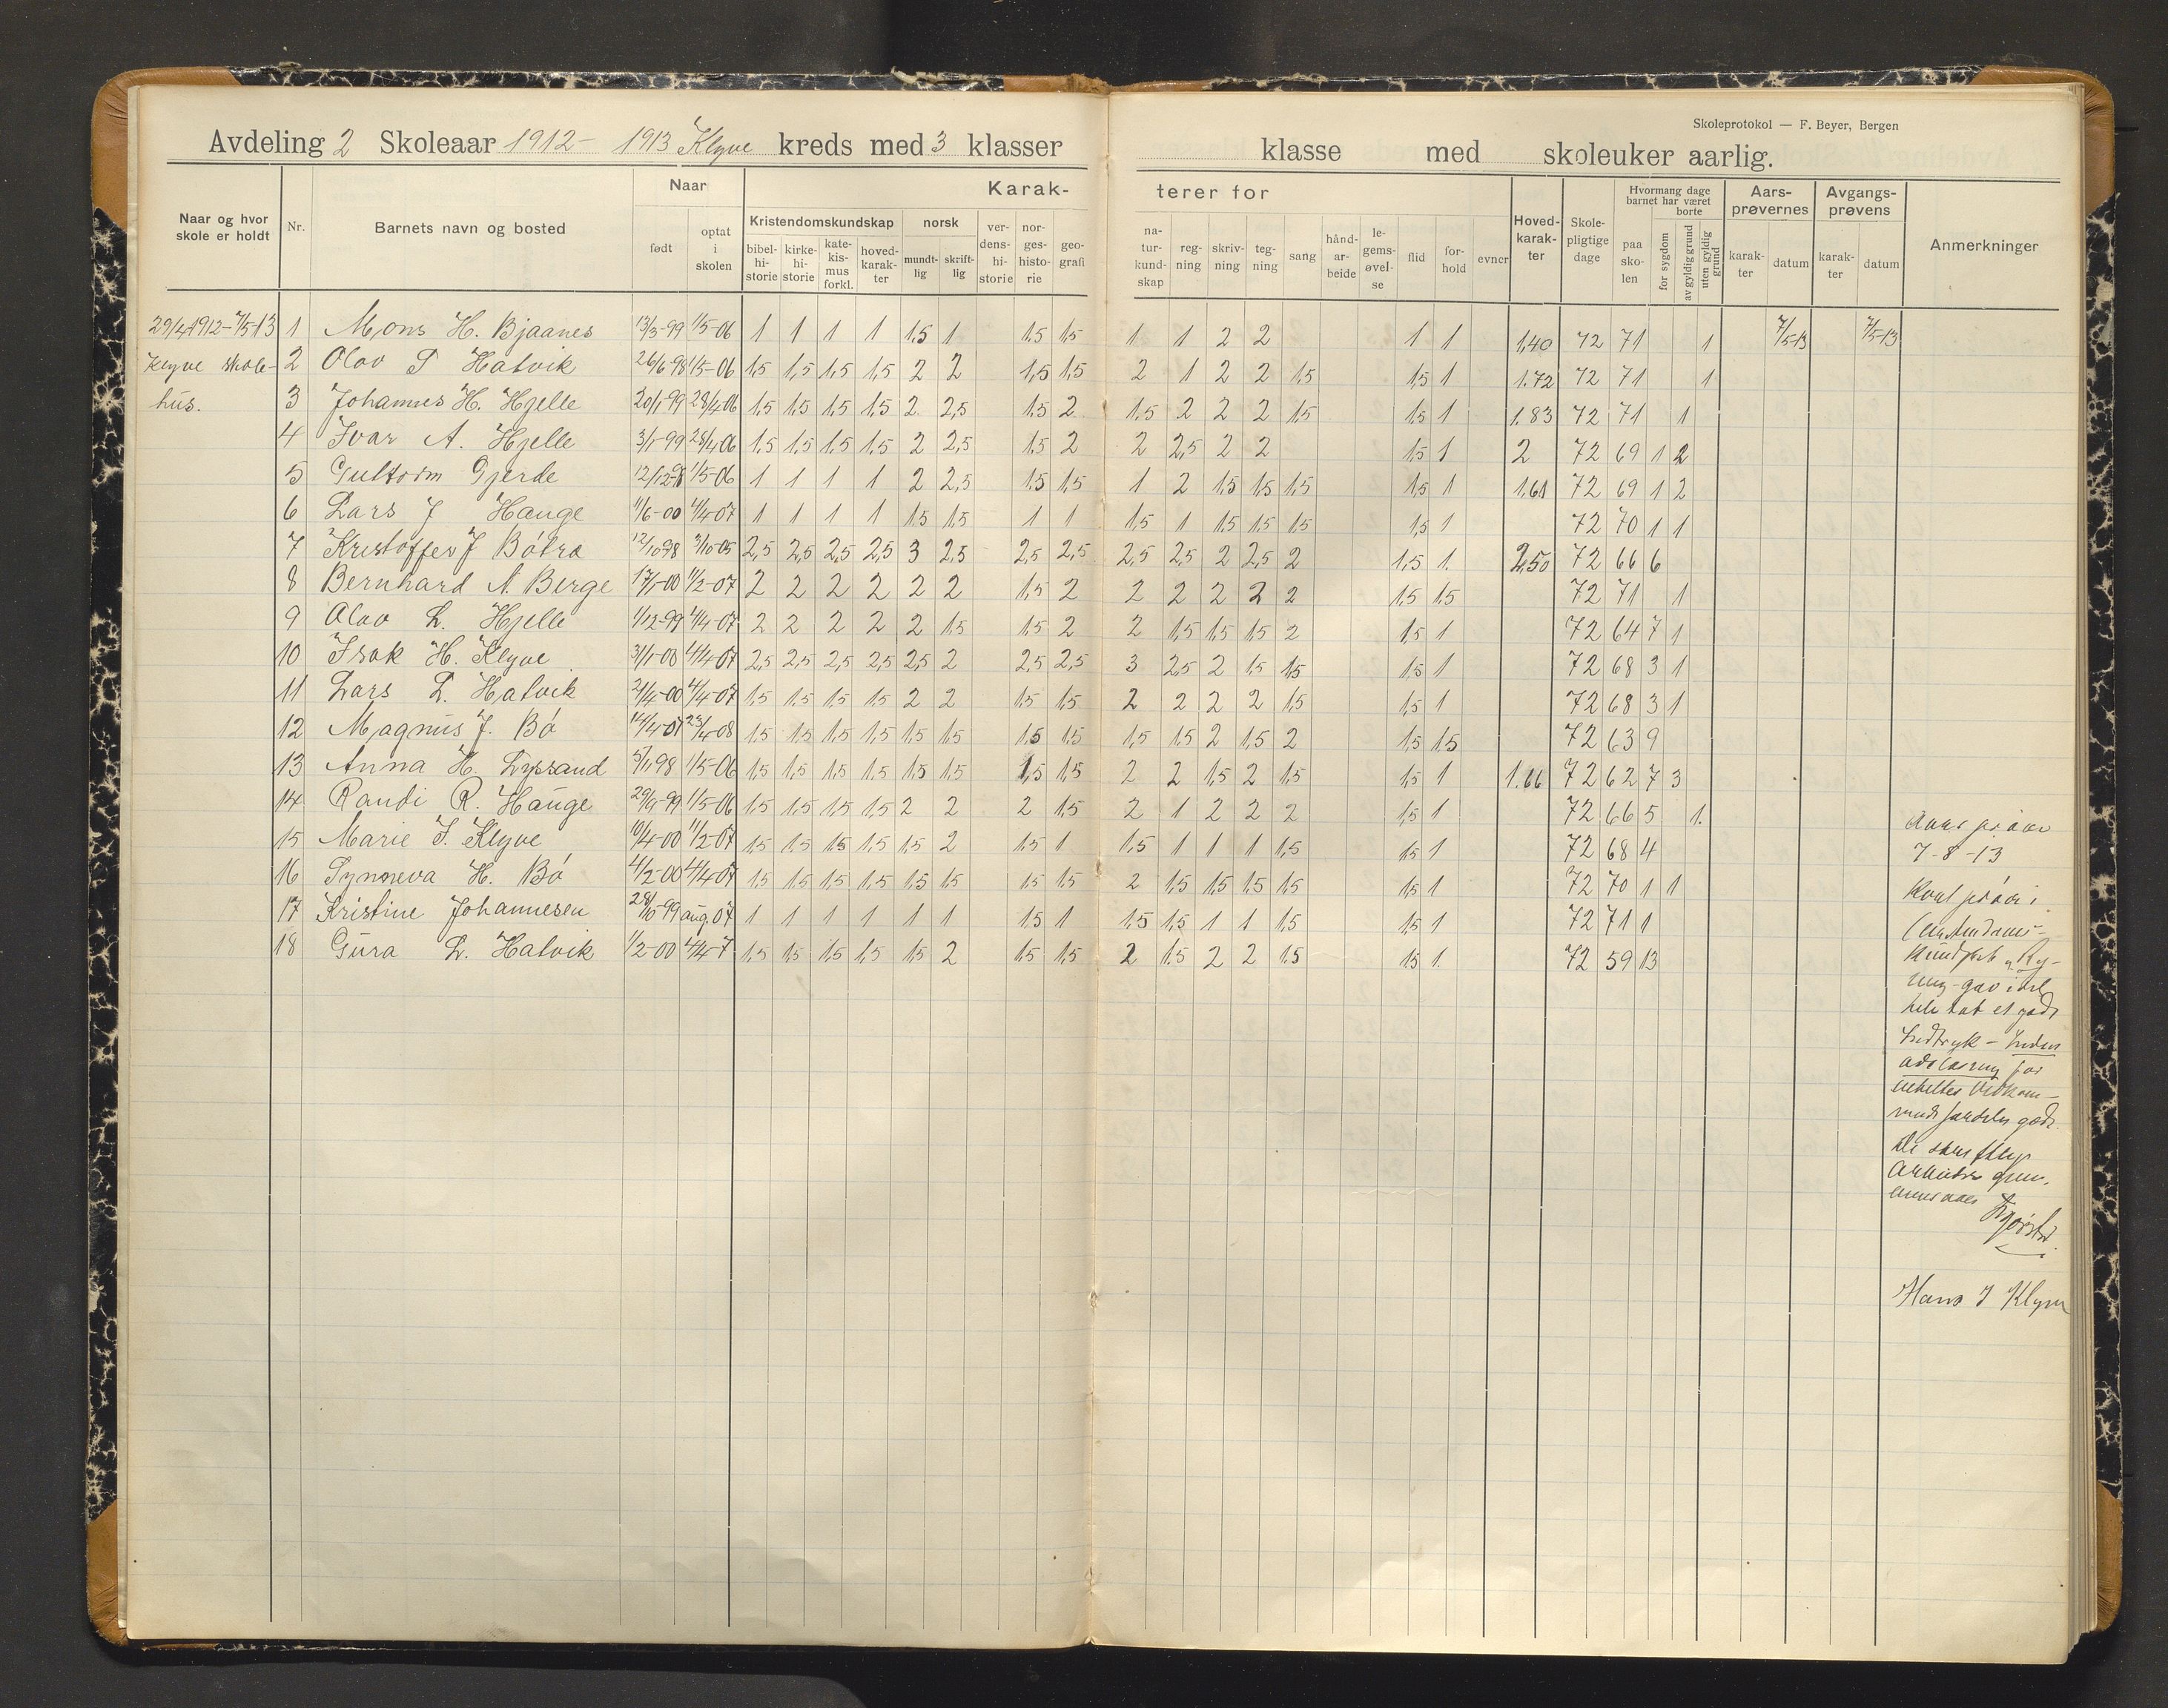 Skoleprotokol — F. Beyer, Bergen
Avdeling 2 Skoleaar 1912- 1913 Klyve kreds med 3 klasser
klasse med skoleuker aarlig.
Naar og hvor skole er holdt
Nr.
Barnets navn og bosted
Naar
født
optat i skolen
Karak-
terer for
Kristendomskundskap
bibel-hi-storie
kirke-hi-storie
kate-kis-mus forkl.
hoved-karak-ter
norsk
mundt-lig
skrift-lig
ver-dens-hi-storie
nor-ges-histo-rie
geo-grafi
na-tur-kund-skap
reg-ning
skriv-ning
teg-ning
sang
hånd-ar-beide
le-gems-øvel-se
flid
for-hold
evner
Hoved-karak-ter
Skole-pligtige dage
Hvormang dage barnet har været
paa sko-len
borte
for sygdom
av gyldig grund
uten gyldig grund
Aars-prøvernes
karak-ter
datum
Avgangs-prøvens
karak-ter
datum
Anmerkninger
29/4 1912-7/5-13
Klyve skole-
hus.
1 Mons H. Bjaanes 13/3-99 1/5-06 1 1 1 1 1,5 1 1,5 1,5 1 1 2 2 1 1 1,40 72 71 1 7/5-13 7/5-13
2 Olav P Hatvik 26/6-98 1/5-06 1,5 1,5 1,5 1,5 2 2 1,5 1,5 2 1 2 2 1,5 1,5 1 1.72 72 71 1
3 Johannes H. Hjelle 20/1-99 28/4 06 1,5 1,5 1,5 1,5 2 2,5 1,5 2 1,5 2 2 2 1,5 1,5 1 1.83 72 71 1
4 Ivar A. Hjelle 3/1-99 28/4 06 1,5 1,5 1,5 1,5 2 2,5 1,5 2 2 2,5 2 2 1,5 1 2 72 69 1 2
5 Guttorm Gjerde 12/12-98 1/5-06 1 1 1 1 2 2,5 1,5 1,5 1 2 1,5 1,5 1,5 1,5 1 1.61 72 69 1 2
6 Lars J Hauge 11/6-00 4/4-07 1 1 1 1 1,5 1,5 1 1 1,5 1 1,5 1,5 1,5 1,5 1 72 70 1 1
7 Kristoffer J Bøtra 12/10 98 3/10-05 2,5 2,5 2,5 2,5 3 2,5 2,5 2,5 2,5 2,5 2 2,5 2 1,5 1. 2,50 72 66 6
8 Bernhard A. Berge 17/1-00 11/2-07 2 2 2 2 2 2 1,5 2 2 2 2 2 2 1,5 1,5 72 71 1
9 Olav L. Hjelle 1/12-99 4/4-07 2 2 2 2 2 1,5 1,5 2 2 1,5 1,5 1,5 2 1,5 1 72 64 7 1
10 Isak H. Klyve 31/1-00 4/4-07 2,5 2,5 2,5 2,5 2,5 2 2,5 2,5 3 2,5 2 1,5 1,5 1,5 1 72 68 3 1
11 Lars L. Hatvik 21/4-00 4/4-07 1,5 1,5 1,5 1,5 2 2 1,5 1,5 2 2 2 2 1,5 1,5 1 72 68 3 1
12 Magnus J. Bø 14/4-01 23/4-08 1,5 1,5 1,5 1,5 1,5 1,5 1,5 1,5 1,5 1,5 2 1,5 2 1,5 1,5 72 63 9
13 Anna H. Lyssand 5/1 98 1/5-06 1,5 1,5 1,5 1,5 1,5 1,5 1,5 1,5 2 2 1,5 2 1,5 1,5 1 1.66 72 62 7 3
14 Randi R. Hauge 29/9-99 1/5-06 1,5 1,5 1,5 1,5 2 2 2 1,5 2 1 2 2 2 1,5 1 72 66 5 1.
15 Marie I. Klyve 10/4-00 11/2-07 1,5 1,5 1,5 1,5 1,5 2 1,5 1 1,5 1 1 1 1,5 1,5 1 72 68 4
16 Synneva H. Bø 4/2-00 4/4-07 1,5 1,5 1,5 1,5 1,5 1,5 1,5 1,5 2 1,5 1,5 1,5 1,5 1,5 1 72 70 1 1
17 Kristine Johannesen 28/10-99 aug 07 1 1 1 1 1 1 1,5 1 1,5 1,5 1 1 1,5 1,5 1 72 71 1
18 Gura L. Hatvik 1/2-00 4/4-7 1,5 1,5 1,5 1,5 1,5 2 1,5 1,5 2 1,5 2 2 1.5 1,5 1. 72 59 13
7-8-13
et godt
Indtryk -
godt.
Hans J Klyve